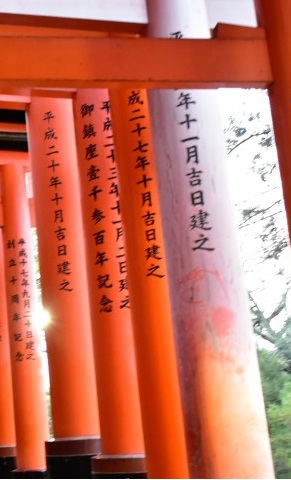 年十一月吉日建之
成二十七年十月吉日建之
平成二十三年十一月二日建之
御鎮座壹千参百年記念
平成二十年十月吉日建之
平成十七年九月二十日建之
創立十周年記念